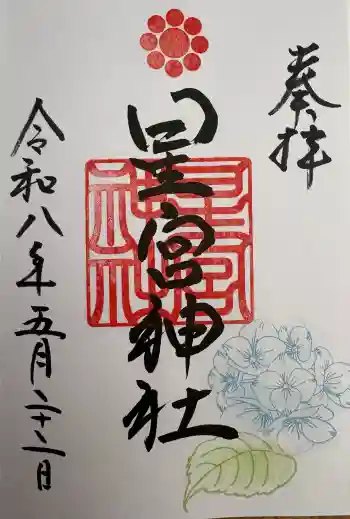 奉拝
星宮神社
令和八年五月二十二日
星宮
神社